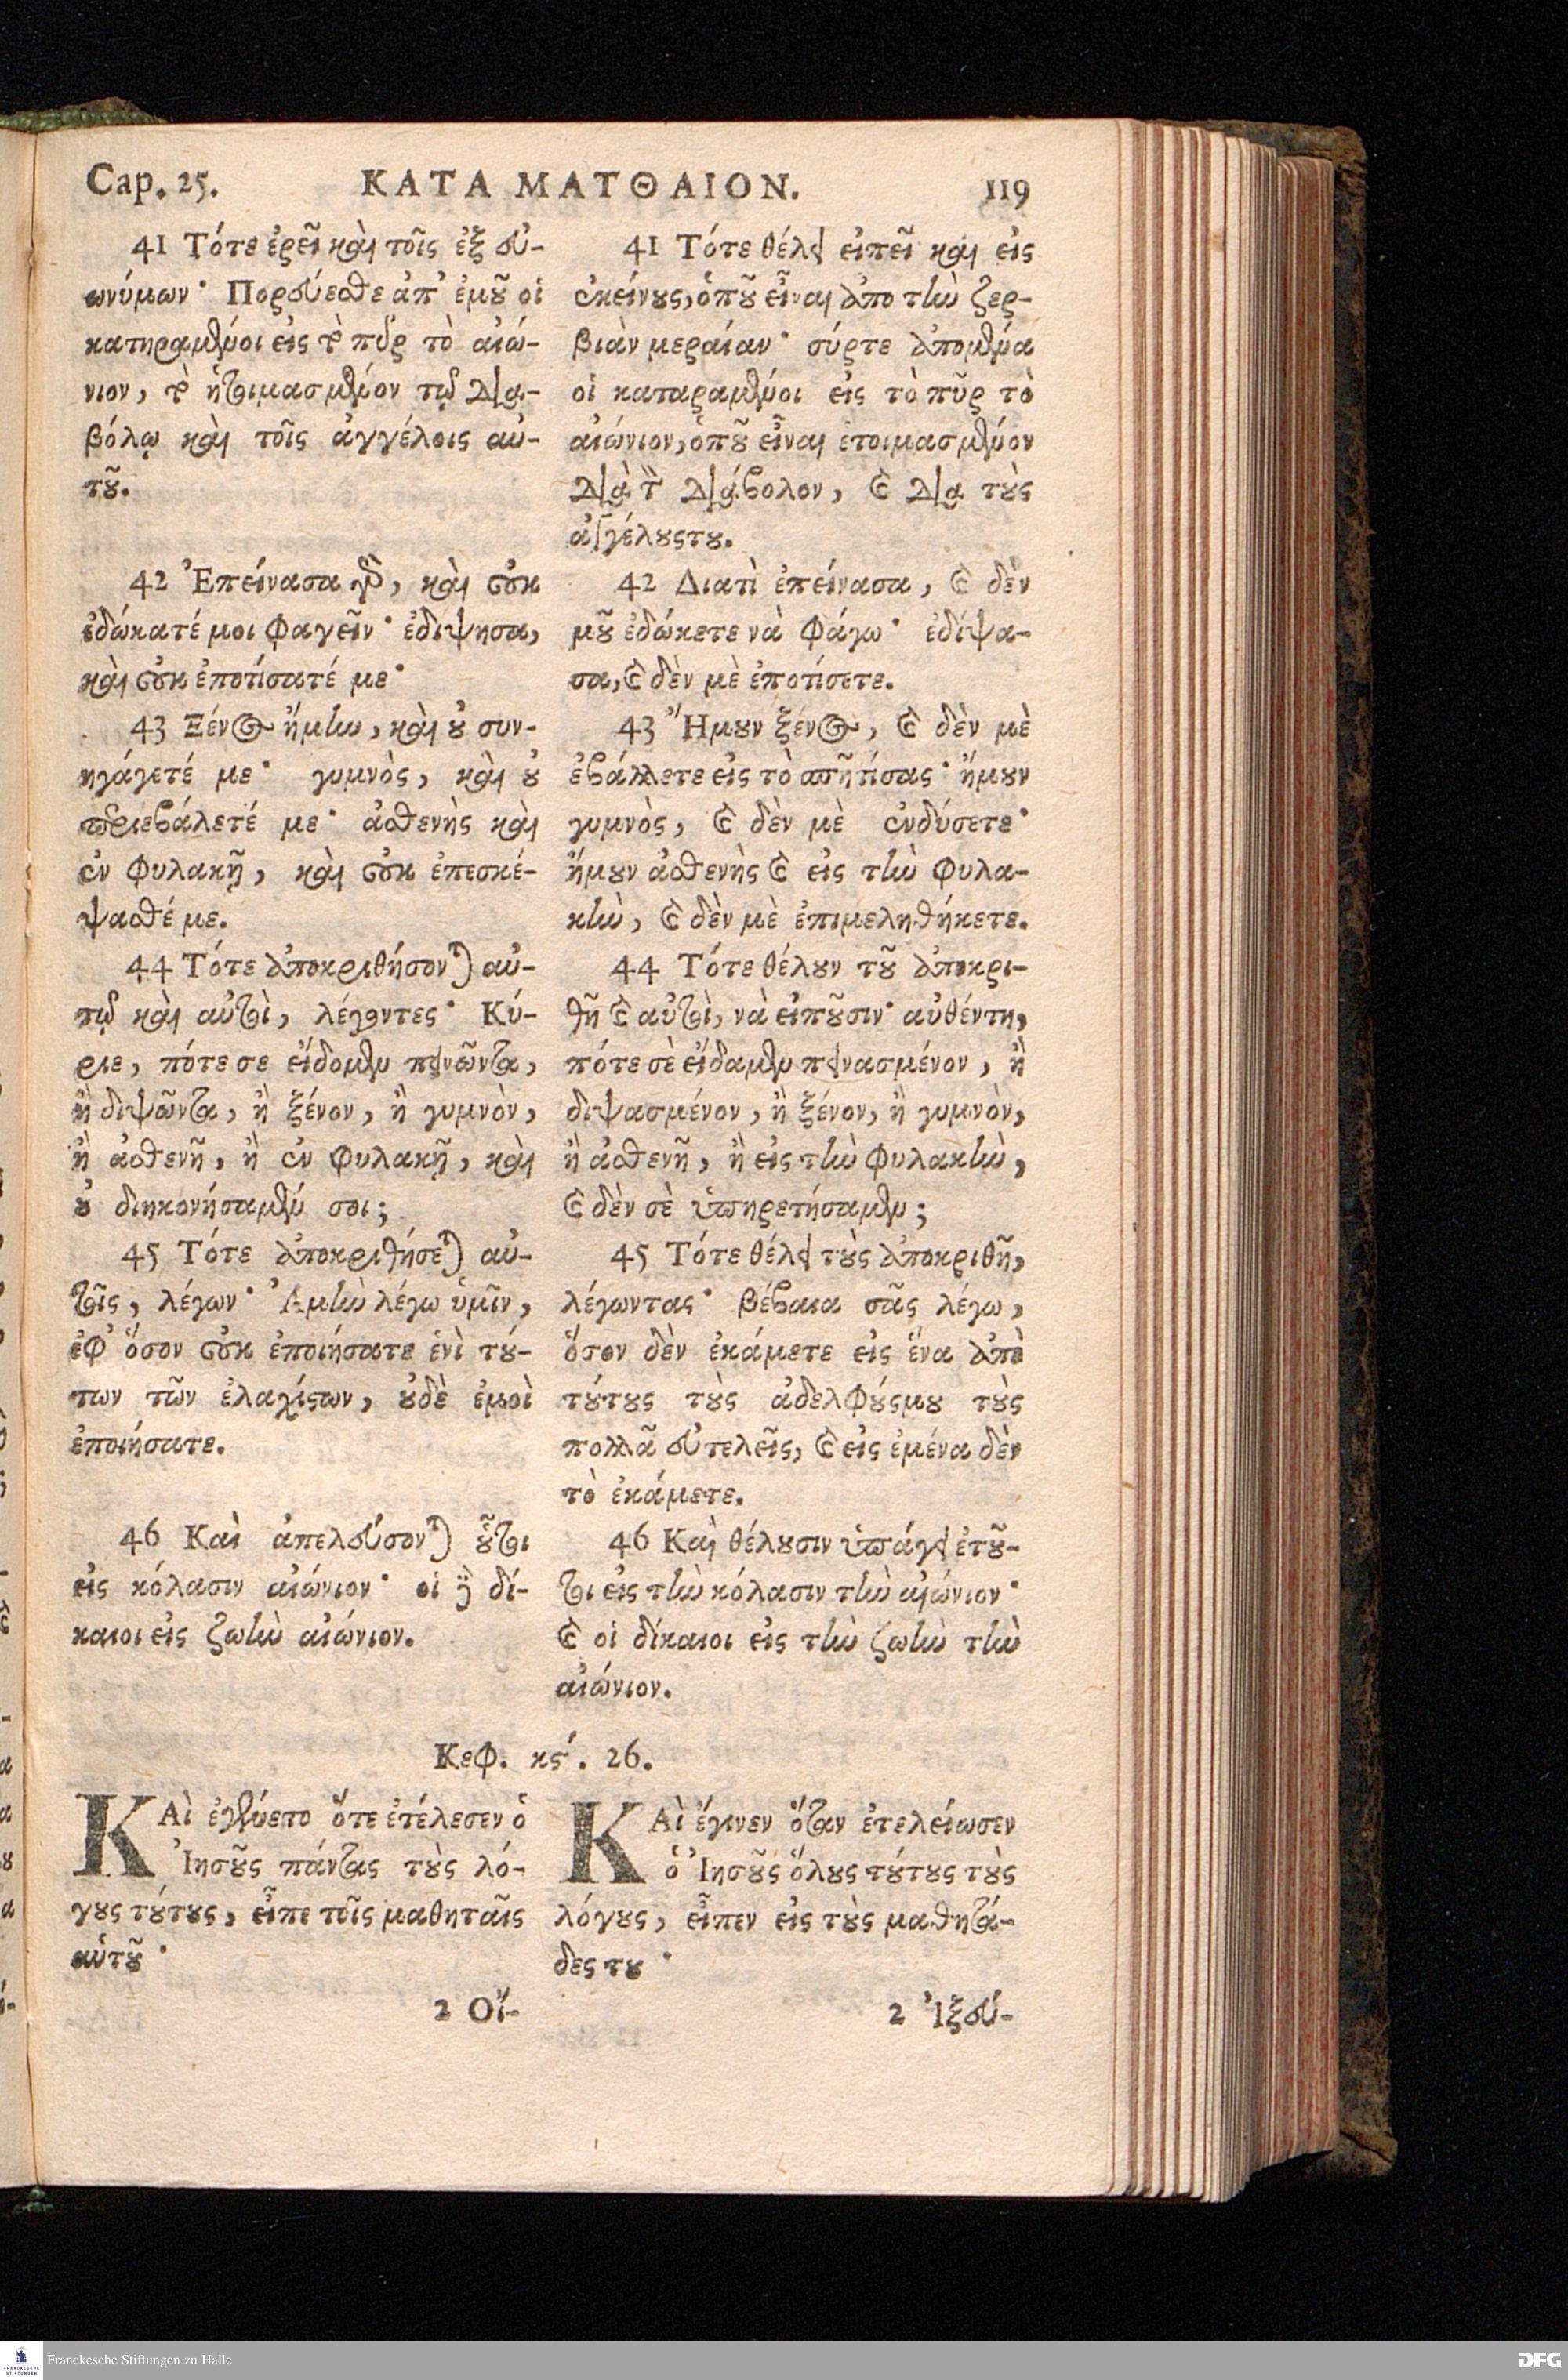 Cap. 25. ΚΑΤΑ ΜΑΤΘΑΙΟΝ. 119
41 Τότε ἐρεῖ καὶ τοῖς ἐξ εὐ-
ωνύμων· Πορεύεσθε ἀπ' ἐμοῦ οἱ
κατηραμένοι εἰς τὸ πῦρ τὸ αἰώ-
νιον, τὸ ἡτοιμασμένον τῷ Δια-
βόλῳ καὶ τοῖς ἀγγέλοις αὐ-
τοῦ.
42 Ἐπείνασα γὰρ, καὶ οὐκ
ἐδώκατέ μοι φαγεῖν· ἐδίψησα,
καὶ οὐκ ἐποτίσατέ με·
43 Ξένος ἤμην, καὶ οὐ συν-
ηγάγετέ με· γυμνὸς, καὶ οὐ
περιεβάλετέ με· ἀσθενὴς καὶ
ἐν φυλακῇ, καὶ οὐκ ἐπεσκέ-
ψασθέ με.
44 Τότε ἀποκριθήσονται αὐ-
τῷ καὶ αὐτοὶ, λέγοντες· Κύ-
ριε, πότε σε εἴδομεν πεινῶντα,
ἢ διψῶντα, ἢ ξένον, ἢ γυμνὸν,
ἢ ἀσθενῆ, ἢ ἐν φυλακῇ, καὶ
οὐ διηκονήσαμέν σοι;
45 Τότε ἀποκριθήσεται αὐ-
τοῖς, λέγων· Ἀμὴν λέγω ὑμῖν,
ἐφ' ὅσον οὐκ ἐποιήσατε ἑνὶ τού-
των τῶν ἐλαχίστων, οὐδὲ ἐμοὶ
ἐποιήσατε.
46 Καὶ ἀπελεύσονται οὗτοι
εἰς κόλασιν αἰώνιον· οἱ δὲ δί-
καιοι εἰς ζωὴν αἰώνιον.
41 Τότε θέλει εἰπεῖ καὶ εἰς
ἐκείνους, ὁποῦ εἶναι ἀπο τὴν ζερ-
βιὰν μεραίαν· σύρτε ἀπομένα
οἱ καταραμένοι εἰς τὸ πῦρ τὸ
αἰώνιον, ὁποῦ εἶναι ἑτοιμασμένον
Διὰ τὸν Διάβολον, καὶ Δια τοὺς
ἀγγέλουςτου.
42 Διατὶ ἐπείνασα, καὶ δὲν
μοῦ ἐδώκετε νὰ φάγω· ἐδίψα-
σα, καὶ δὲν μὲ ἐποτίσετε.
43 Ἤμουν ξένος, καὶ δὲν μὲ
ἐβάλλετε εἰς τὸ σπῆτίσας· ἤμουν
γυμνὸς, καὶ δὲν μὲ ἐνδύσετε·
ἤμουν ἀσθενὴς καὶ εἰς τὴν φυλα-
κὴν, καὶ δὲν μὲ ἐπιμεληθήκετε.
44 Τότε θέλουν τοῦ ἀποκρι-
θῆ καὶ αὐτοὶ, νὰ εἰποῦσιν· αὐθέντη,
πότε σὲ εἴδαμεν πεινασμένον, ἢ
διψασμένον, ἢ ξένον, ἢ γυμνὸν,
ἢ ἀσθενῆ, ἢ εἰς τὴν φυλακὴν,
καὶ δὲν σὲ ὑπηρετήσαμεν;
45 Τότε θέλει τοὺς ἀποκριθῆ,
λέγωντας· βέβαια σᾶς λέγω,
ὅσον δὲν ἐκάμετε εἰς ἕνα ἀπὸ
τούτους τοὺς ἀδελφούςμου τοὺς
πολλᾶ εὐτελεῖς, καὶ εἰς ἐμένα δὲν
τὸ ἐκάμετε.
46 Καὶ θέλουσιν ὑπάγει ἐτοῦ-
τοι εἰς τὴν κόλασιν τὴν αἰώνιον·
καὶ οἱ δίκαιοι εἰς τὴν ζωὴν τὴν
αἰώνιον.
Κεφ. κϛ΄. 26.
ΚΑὶ ἐγένετο ὅτε ἐτέλεσεν ὁ
Ἰησοῦς πάντας τοὺς λό-
γους τούτους, εἶπε τοῖς μαθηταῖς
αὑτοῦ·
2 Οἴ-
ΚΑὶ ἔγινεν ὅταν ἐτελείωσεν
ὁ Ἰησοῦς ὅλους τούτους τοὺς
λόγους, εἶπεν εἰς τοὺς μαθητά-
δες του·
2 Ἰξεύ-
FRANCKESCHE STIFTUNGEN
Franckesche Stiftungen zu Halle
DFG